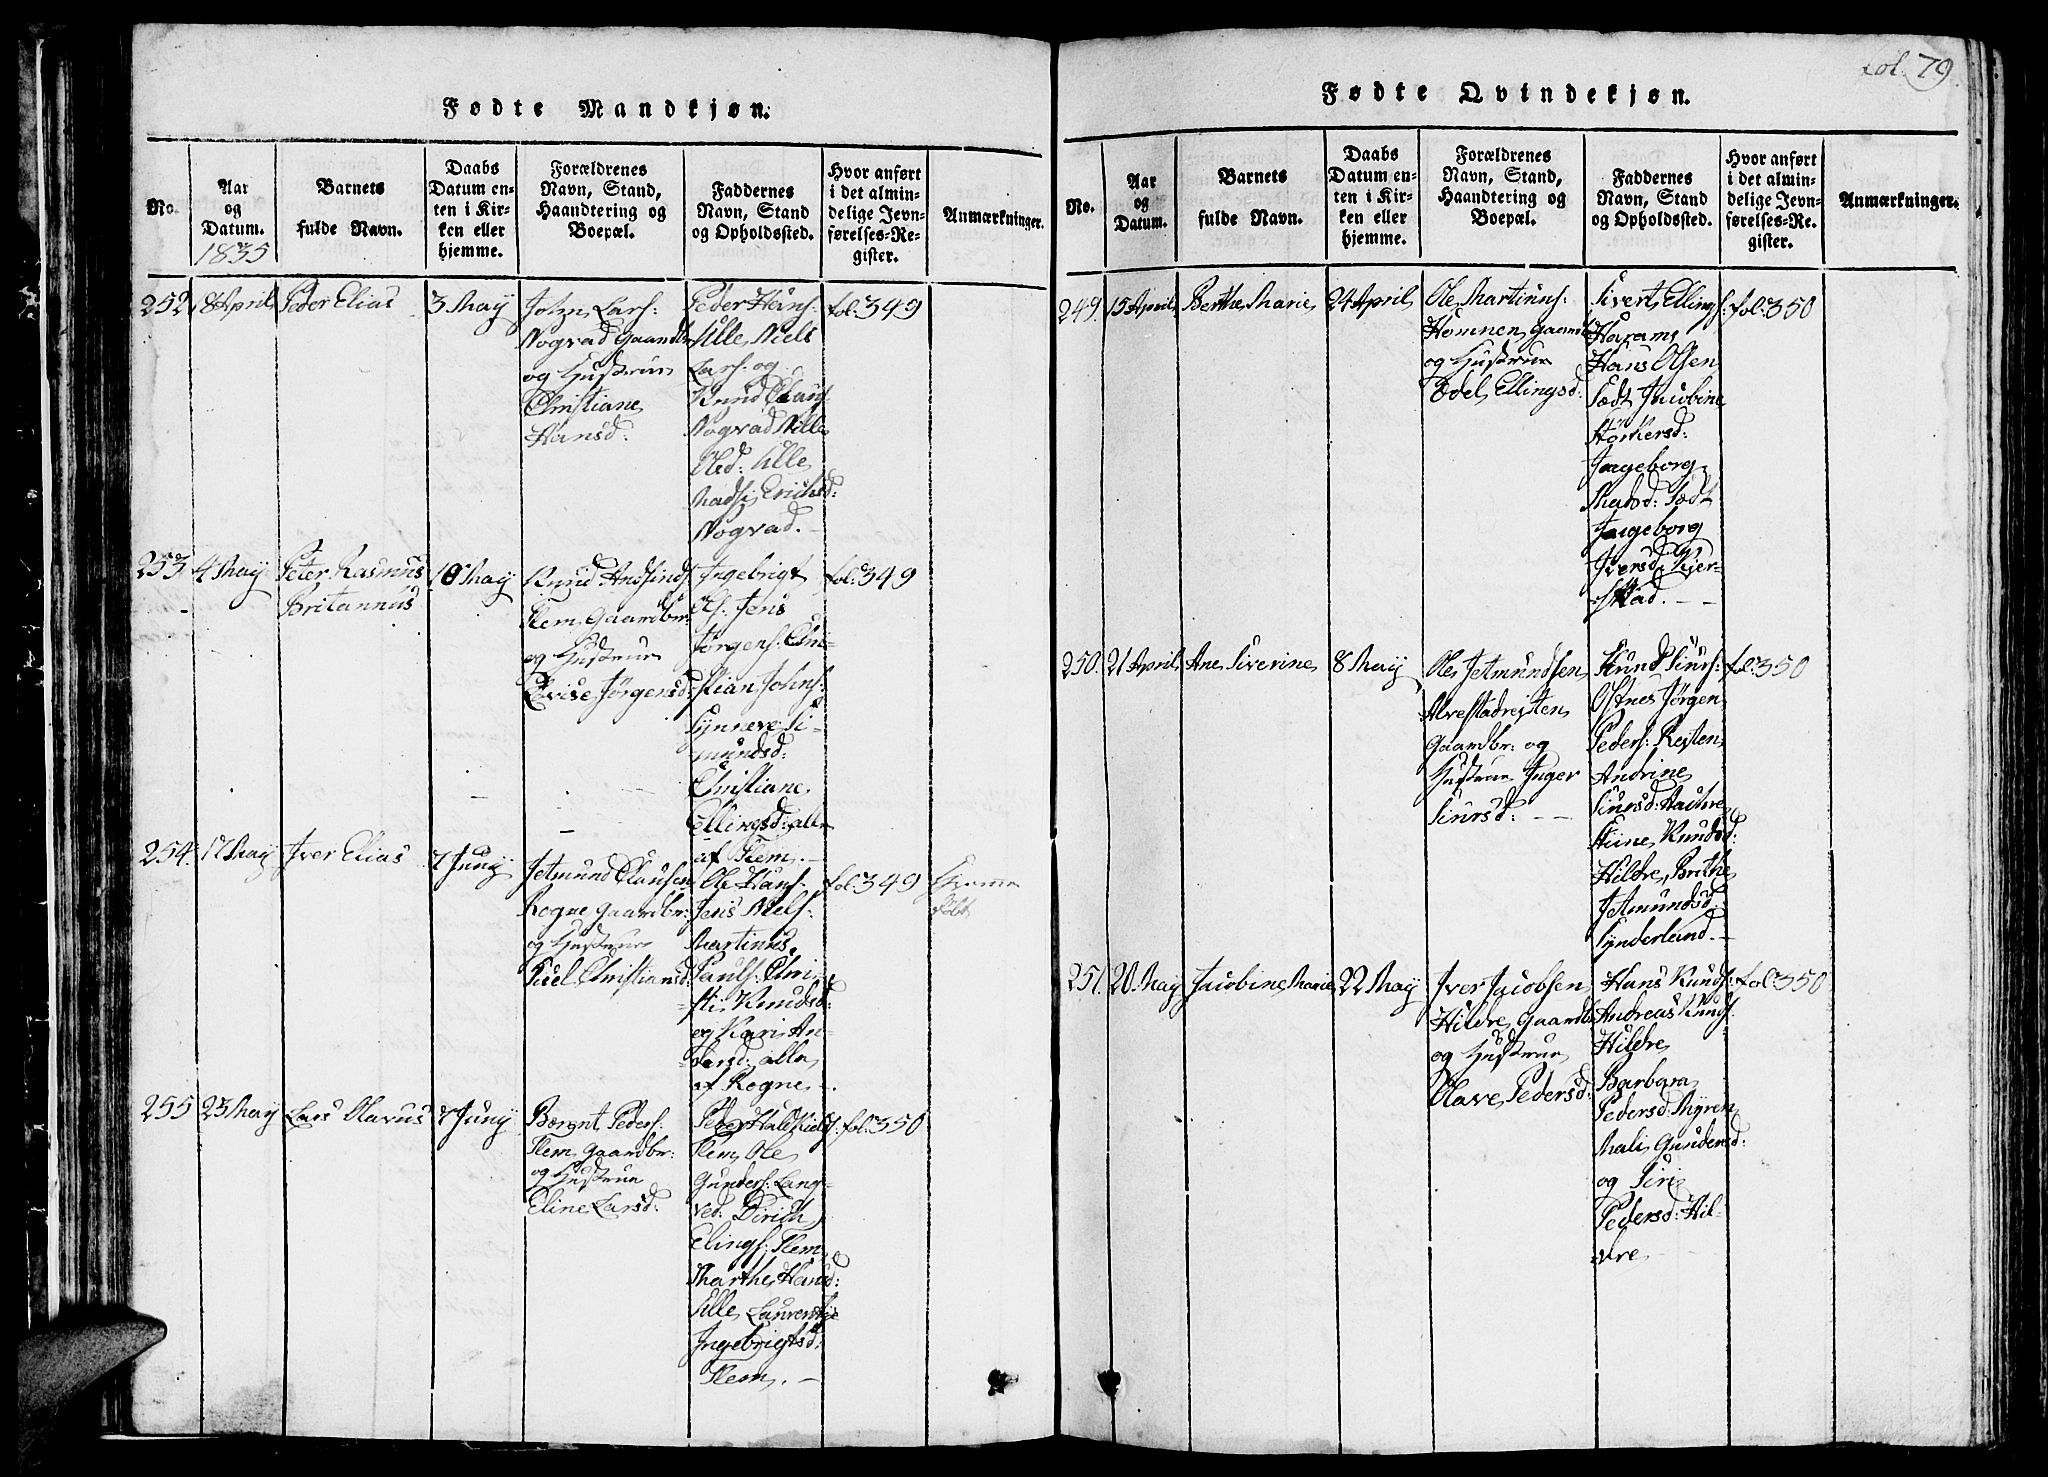 Fødte Mandkjøn.
No.
Aar
og
Datum.
1835
Barnets
fulde Navn.
Daabs
Datum en-
ten i Kir-
ken eller
hjemme.
Forældrenes
Navn, Stand,
Haandtering og
Boepæl.
Faddernes
Navn, Stand
og Opholdssted.
Hvor anført
i det almin-
delige Jevn-
førelses-Re-
gister.
Anmærkninger.
252
18 April
Peder Elias
3 May
John Lars:
Nogvad Gaardbr
og Hustrue
Christiane
Hansd:
Peder Hans:
Ulle, Niels
Lars: og
Knud
Nogvad Nille
Oled: Ulle
Erichsd:
Nogvad. -
fol: 349
253
4 May
Peter Rasmus
Britannus
10 May
Knud
Slem, Gaardbr:
og Hustrue
Jørgensd:
Ingebrigt
Ols: Jens
Jørgens: Chri-
stian Johns:
Synneve Si-
mundsd:
Christiane
Ellingsd: alle
af Slem. -
fol: 349
254.
17 May
Iver Elias
7 Juny
Jetmund Clausen
Rogne Gaardbr:
og Hustrue
Christiansd:
Ole Hans:
Jens Niels:
Martinus
Pauls: Chri-
sti Knudsd:
og Kari An-
dersd: alle
af Rogne -.
fol: 349
255
23 May
Lars Olavus
7 Juny
Berent Peders:
Slem, Gaardbr:
og Hustrue
Eline Larsd:
Peder
Slem, Ole
Gunders: Lang-
ved:
Elings: Slem,
Marthe Hansd:
Ulle,
Ingebrigtsd:
Slem. -
fol: 350
fol. 79
Fødte Qvindekjøn.
No.
Aar
og
Datum.
Barnets
fulde Navn.
Daabs
Datum en-
ten i Kir-
ken eller
hjemme.
Forældrenes
Navn, Stand,
Haandtering og
Boepæl.
Faddernes
Navn, Stand
og Opholdssted.
Hvor anført
i det almin-
delige Jevn-
førelses-Re-
gister.
Anmærkninger.
249.
15 April
Berthe Marie
24 April
Ole Martinus:
Homnen, Gaardbr
og Hustrue
Edel Ellingsd:
Sivert Ellings:
Haram,
Hans Olsen
Sædt Jacobine
Ingeborg
Sædt
Ingeborg
Iversd: Kjer-
stad. - -
fol: 350
250.
21 April
Ane Siverine
8 May
Ole Jetmundsen
Alvestadreiten
Gaardbr: og
Hustrue Inger
Siursd: - -
Knud Siurs:
Østnes Jørgen
Peders: Reiten
Andrine
Siursd:
Knudsd:
Hildre, Brithe
Jetmundsd:
Synderland. -
fol: 350
251.
20 May
Jacobine Marie
22 May
Iver Jacobsen
Hildre, Gaardbr
og Hustrue
Olave Pedersd:
Hans Knuds:
Andreas Knuds:
Hildre
Barbara
Pedersd: Myren
Mali Gundersd:
og Siri
Pedersd: Hil-
dre
fol: 350